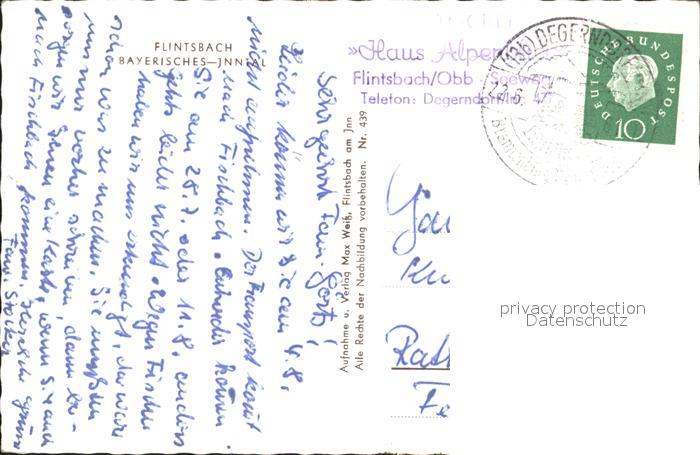 FLINTSBACH
BAYERISCHES—JNNTAL
»Haus Alpen
Flintsbach/Obb Seew
Telefon: Degerndorf/Inn 47
(13b) DEGERND
DEUTSCHE BUNDESPOST
10
Aufnahme u. Verlag Max Weiß, Flintsbach am Jnn
Alle Rechte der Nachbildung vorbehalten. Nr. 439
Sehr geehrte Fam.
Leider können wir Sie am 4.8.
nicht aufnehmen. Der Transport
nach Fischbach. Entweder kommen
Sie am 28.7. oder 11.8. anders
geht's leider nicht. Wegen Fischbach
haben wir uns erkundigt, da wäre
schon was zu machen. Sie müßten
uns nur vorher schreiben, dann
wir Ihnen eine Karte, wenn S. auch
nach Fischbach kommen. Herzliche Grüße
Fam.
Rat
privacy protection
Datenschutz